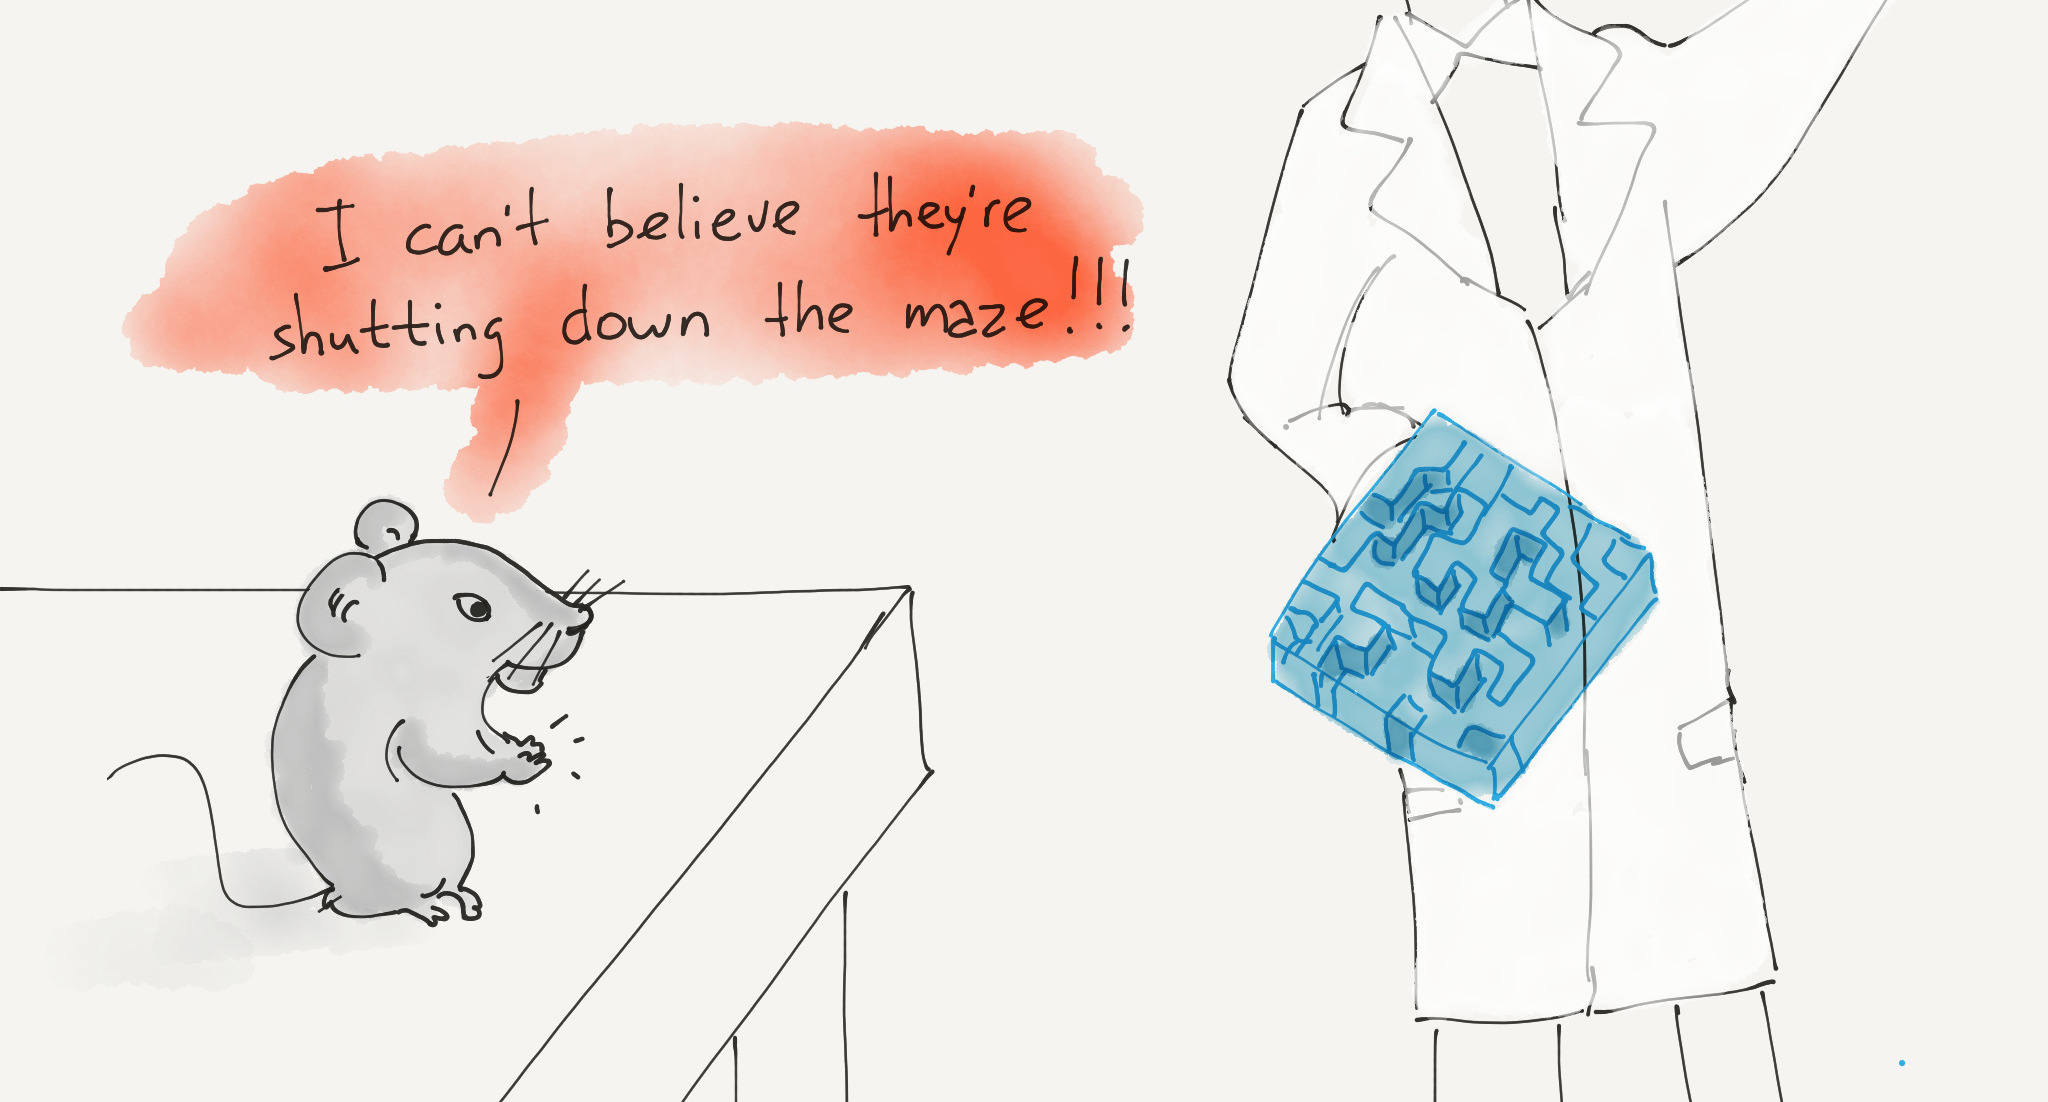 I can't believe they're
shutting down the maze!!!